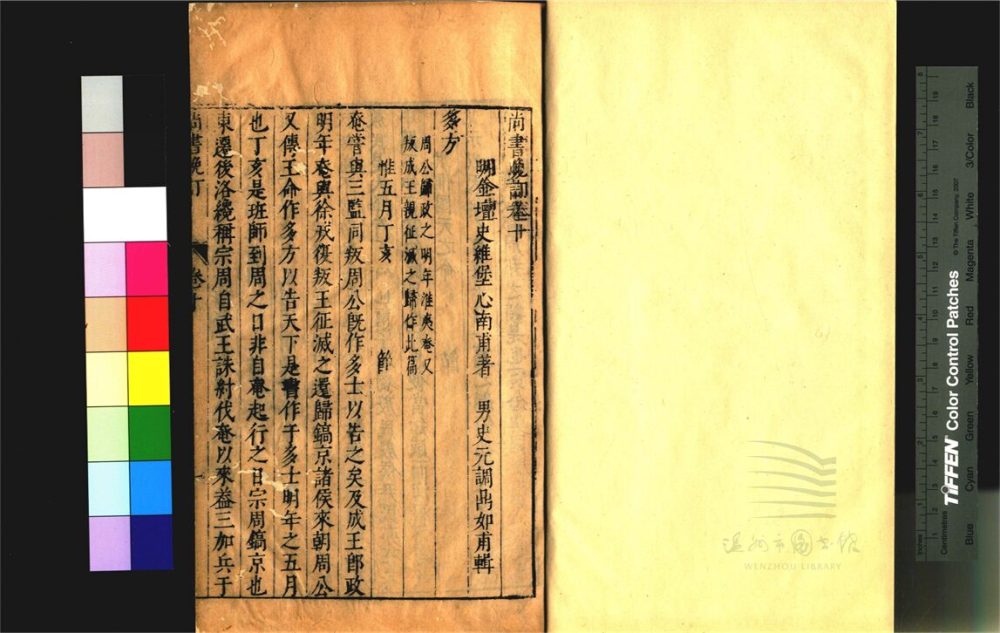 尚書晚訂卷十
明金壇史維堡心南甫著 男史元調鼎如甫輯
多方
周公歸政之明年淮夷奄又
叛成王親征滅之歸作此篇
惟五月丁亥 節
奄嘗與三監同叛周公既作多士以告之矣及成王即政
明年奄與徐戎復叛王征滅之還歸鎬京諸侯來朝周公
又傳王命作多方以告天下是書作于多士明年之五月
也丁亥是班師到周之日非自奄起行之日宗周鎬京也
東遷後洛纔稱宗周自武王誅紂伐奄以來蓋三加兵于
尚書晚訂 卷十 一
温州市图书馆
WENZHOU LIBRARY
TIFFEN Color Control Patches
© The Tiffen Company, 2007
Inches
Centimetres
Blue
Cyan
Green
Yellow
Red
Magenta
White
3/Color
Black